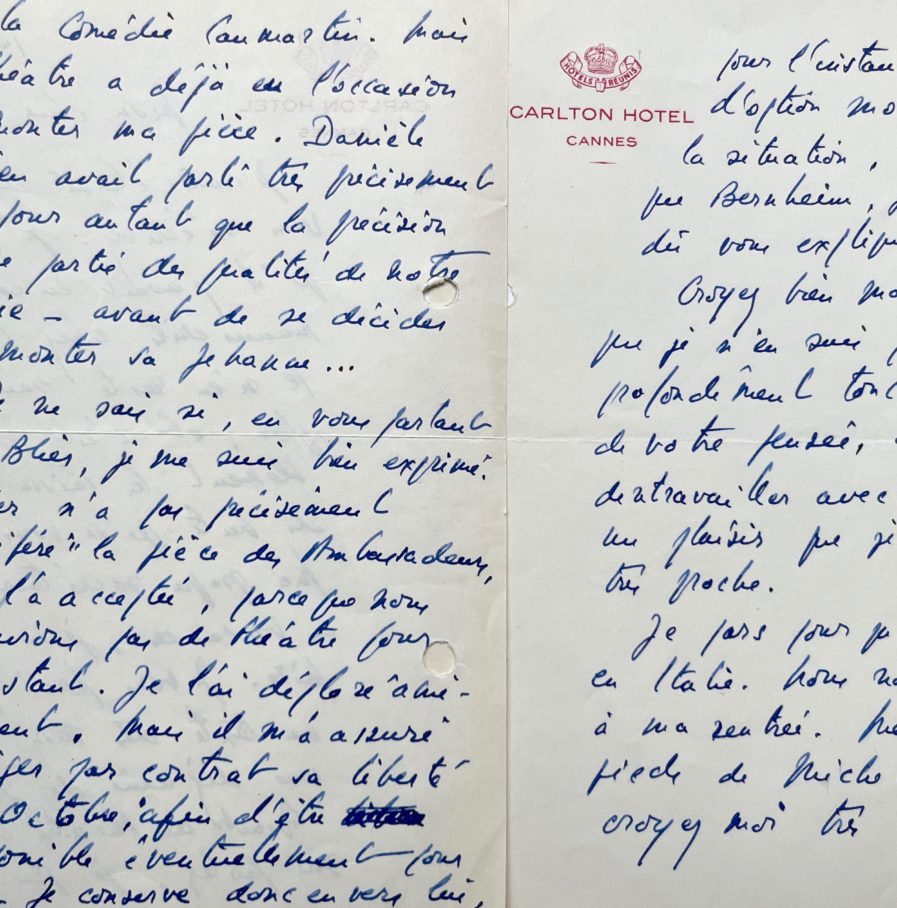 la Comédie Caumartin. Mais
héâtre a déjà eu l'occasion
monter ma pièce. Danièle
en avait parlé très précisement
pour autant que la précision
e partie des qualités de notre
ie - avant de se décider
monter sa Jehanne...
ne sais si, en vous parlant
Blier, je me suis bien exprimé.
er n'a pas précisément
féré" la pièce des Ambassadeurs,
l'a acceptée, parce que nous
avions pas de théâtre pour
stant. Je l'ai déploré amè-
ent. Mais il m'a assuré
ger par contrat sa liberté
Octobre, afin d'être
onible éventuellement pour
- Je conserve donc envers lui,
HOTELS RÉUNIS
CARLTON HOTEL
CANNES
pour l'instan
d'option mo
la situation,
que Bernheim,
dû vous explique
Croyez bien mo
que je n'en suis p
profondément touc
de votre pensée,
de travailler avec
un plaisir que je
très proche.
Je pars pour
en Italie. Nous
à ma rentrée.
pieds de Miche
croyez moi très